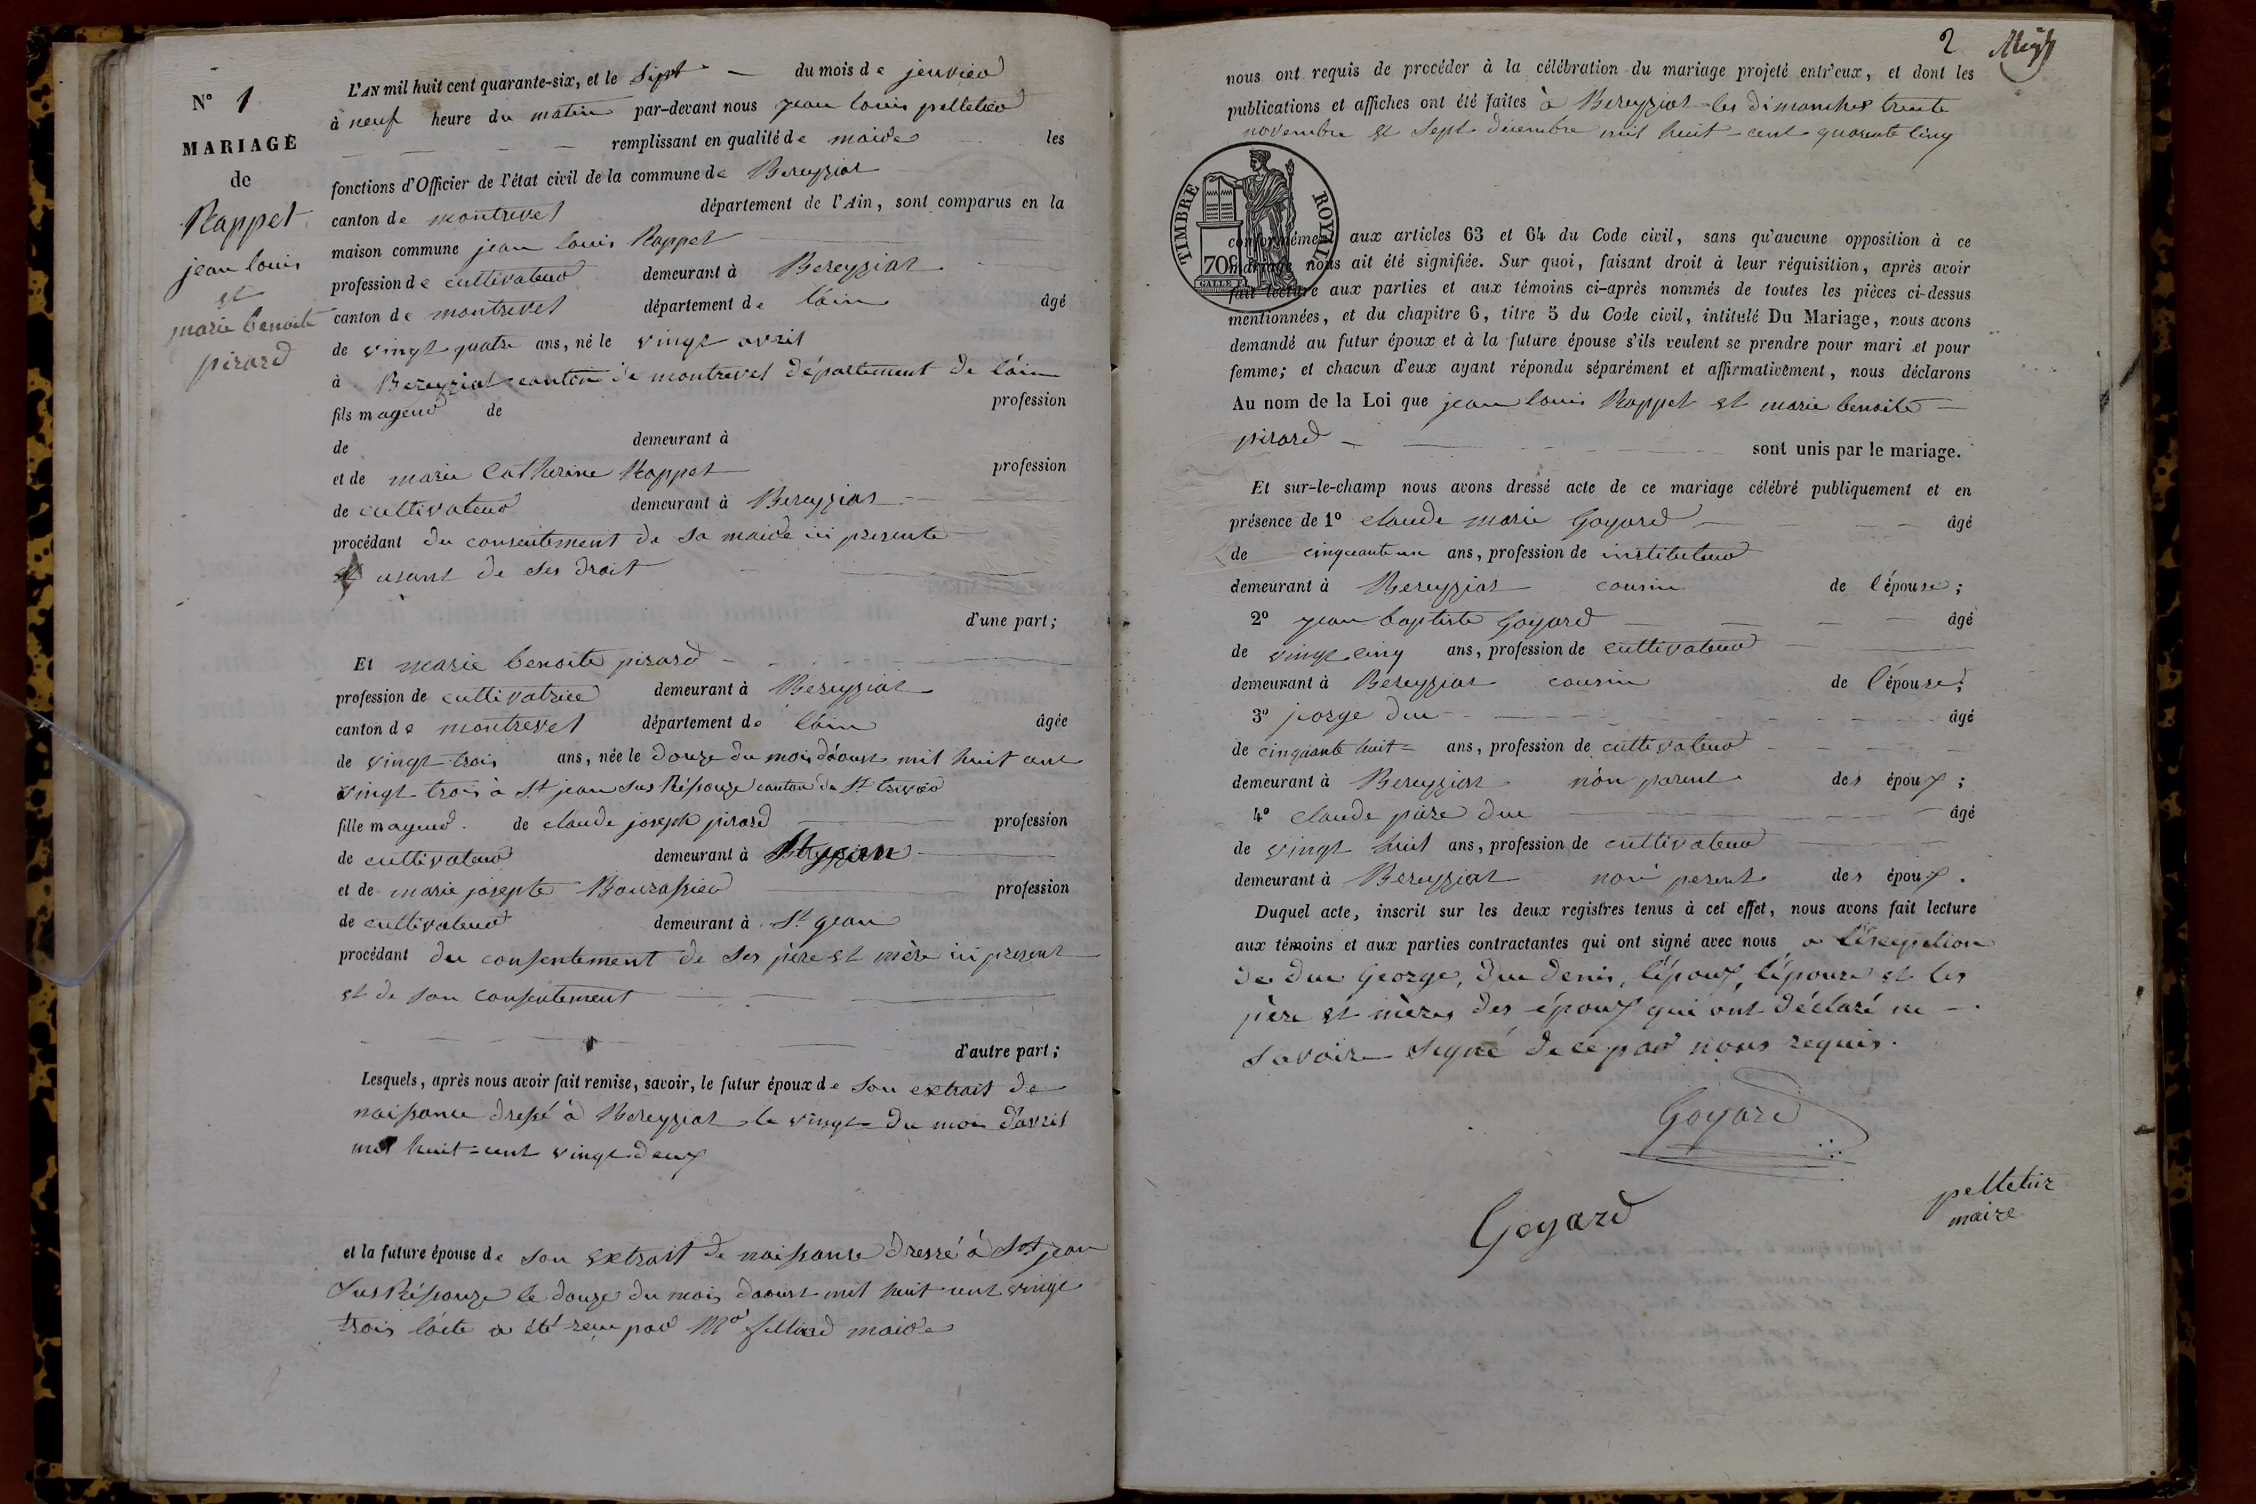 N° 1
MARIAGE
de
Rappet
jean louis
et
marie benoite
pirard
L'AN mil huit cent quarante-six, et le Sept du mois de jenvier
à neuf heure du matin par-devant nous jean louis pelletier
remplissant en qualité de maire les
fonctions d'Officier de l'état civil de la commune de Bereyziat
canton de montrevel département de l'Ain, sont comparus en la
maison commune jean louis Rappet
profession de cultivateur demeurant à Bereyziat
canton de montrevel département de l'ain âgé
de vingt quatre ans, né le vingt avril
à Bereyziat canton de montrevel département de l'ain
fils mageur de profession
de demeurant à
et de marie Catherine Rappet profession
de cultivateur demeurant à Bereyziat
procédant du consentement de sa maire ici presente
et usant de ses droit
d'une part;
Et marie benoite pirard
profession de cultivatrice demeurant à Bereyziat
canton de montrevel département de l'ain âgée
de vingt trois ans, née le douze du mois d'aoust mil huit cent
vingt trois à St jean sus Réssouze canton de St trivier
fille mageur de claude joseph pirard profession
de cultivateur demeurant à St jean
et de marie josepte Bourassier profession
de cultivateur demeurant à St gean
procédant du consentement de ses père et mère ici present
et de son consentement
d'autre part;
Lesquels, après nous avoir fait remise, savoir, le futur époux de son extrait de
naissance dressé à Bereyziat le vingt du mois d'avril
mil huit-cent vingt deux
et la future épouse de son extrait de naissance dressé à St jean
sus Réssouze le douze du mois daoust mil huit cent vingt
trois l'acte a été reçu par Mr filliard maire
2
nous ont requis de procéder à la célébration du mariage projeté entr'eux, et dont les
publications et affiches ont été faites à Bereyziat les dimanches trente
novembre et sept décembre mil huit-cent quarante cinq
TIMBRE ROYAL
70c
GALLE F.
conformément aux articles 63 et 64 du Code civil, sans qu'aucune opposition à ce
mariage nous ait été signifiée. Sur quoi, faisant droit à leur réquisition, après avoir
fait lecture aux parties et aux témoins ci-après nommés de toutes les pièces ci-dessus
mentionnées, et du chapitre 6, titre 5 du Code civil, intitulé Du Mariage, nous avons
demandé au futur époux et à la future épouse s'ils veulent se prendre pour mari et pour
femme; et chacun d'eux ayant répondu séparément et affirmativement, nous déclarons
Au nom de la Loi que jean louis Rappet et marie benoite
pirard sont unis par le mariage.
Et sur-le-champ nous avons dressé acte de ce mariage célébré publiquement et en
présence de 1° claude marie Goyard âgé
de cinquante un ans, profession de instituteur
demeurant à Bereyziat cousin de l'épouse;
2° jean baptiste Goyard âgé
de vingt cinq ans, profession de cultivateur
demeurant à Bereyziat cousin de l'épouse;
3° jorge duc âgé
de cinquante huit ans, profession de cultivateur
demeurant à Bereyziat non parent des époux;
4° claude piere duc âgé
de vingt huit ans, profession de cultivateur
demeurant à Bereyziat non perent des époux.
Duquel acte, inscrit sur les deux registres tenus à cet effet, nous avons fait lecture
aux témoins et aux parties contractantes qui ont signé avec nous a l'éxeption
de duc George, duc denis, l'époux, l'épouse et les
père et mères des époux qui ont déclaré ne
savoir signé de ce par nous requis.
Goyard
Goyard
pelletier
maire